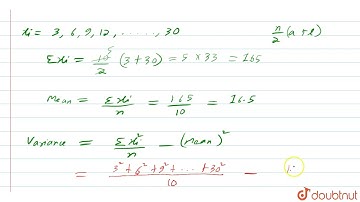 xi = 3, 6, 9, 12, ......, 30 n/2 (a + l)
Σxi = 10/2 (3 + 30) = 5 × 33 = 165
5
Mean = Σxi/n = 165/10 = 16.5
Variance = Σxi²/n - (Mean)²
= 3² + 6² + 9² + ... + 30²/10 -
doubtnut